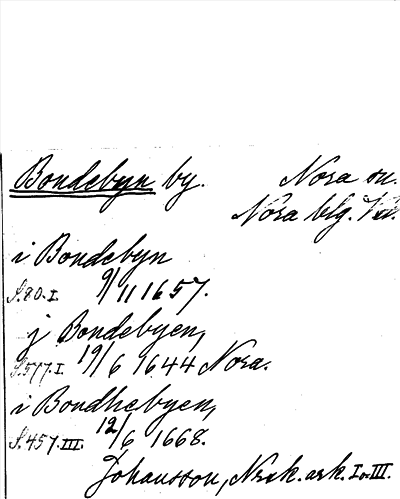 Bondebyn by. Nora sn.
Nora blg.
i Bondebyn
S.80.I. 9/11 1657.
j Bondebyen,
S.577.I. 19/6 1644 Nora.
i Bondhebyen,
S.457.III. 12/6 1668.
Johansson, Nrsk. ark. I o. III.